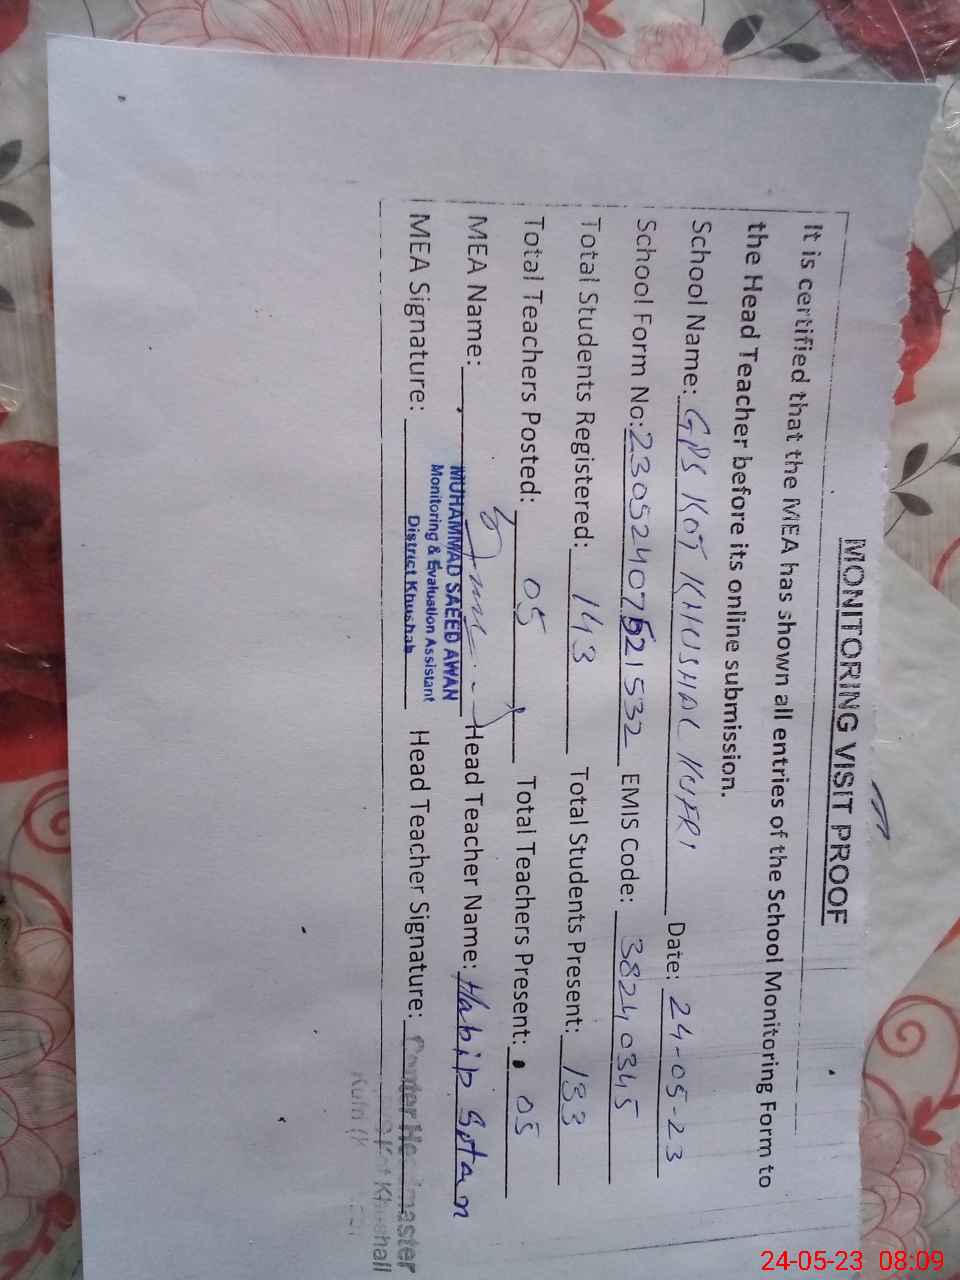 MONITORING VISIT PROOF
It is certified that the MEA has shown all entries of the School Monitoring Form to
the Head Teacher before its online submission.
School Name: GPS KOT KHUSHAL KUFRI Date: 24-05-23
School Form No: 23052407521532 EMIS Code: 38240345
Total Students Registered: 143 Total Students Present: 133
Total Teachers Posted: 05 Total Teachers Present: 05
MEA Name: Head Teacher Name: Habib
MUHAMMAD SAEED AWAN
Monitoring & Evaluation Assistant
District Khushab
MEA Signature: Head Teacher Signature:
Center Headmaster
Kot Khushall
24-05-23 08:09